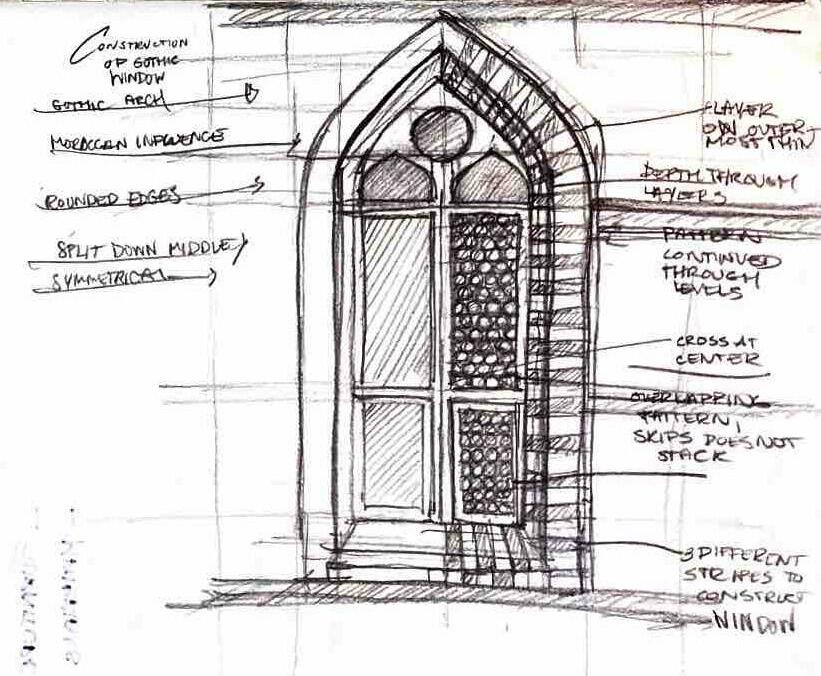 CONSTRUCTION
OF GOTHIC
WINDOW
GOTHIC ARCH
MORACCAN INFLUENCE
ROUNDED EDGES
SPLIT DOWN MIDDLE/
SYMMETRICAL
LAYER
ON OUTER-
MOST THIN
DEPTH THROUGH
LAYERS
PATTERN
CONTINUED
THROUGH
LEVELS
CROSS AT
CENTER
OVERLAPPING
PATTERN,
SKIPS DOES NOT
STACK
3 DIFFERENT
STRIPES TO
CONSTRUCT
WINDOW